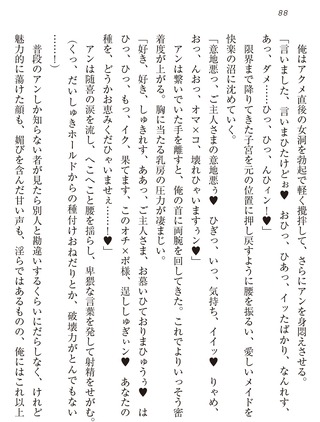 88
俺はアクメ直後の女洞を勃起で軽く攪拌して、さらにアンを身悶えさせる。
「言いました、言いまひたけどぉ♥　おひっ、ひあっ、イッたばかり、なんれす、
あっ、ダメ……ひっ、ひっ、んひィィンー♥」
限界まで降りてきた子宮を元の位置に押し戻すように腰を振るい、愛しいメイドを
快楽の沼に沈めていく。
「意地悪っ、ご主人さまの意地悪ぅ♥　ひぎっ、いっ、気持ち、イイッ♥　りゃめ、
おっ、んおっっ、オマ×コ、壊れひゃいますぅン♥」
アンは繋いでいた手を離すと、俺の首に両腕を回してきた。これでよりいっそう密
着度が上がる。胸に当たる乳房の圧力が凄まじい。
「好き、好き、しゅきれす、ああっ、ご主人さま、お慕いひておりまひゅうぅ♥　は
ひっ、ひっ、もっ、イク、果てます、このオチ×ポ様、逞ししゅぎィン♥　あなたの
種を、どうかお恵みくだひゃいませぇ……！♥」
アンは随喜の涙を流し、へこへこと腰を揺らし、卑猥な言葉を発して射精をせがむ。
（くっ、だいしゅきホールドからの種付けおねだりとか、破壊力がとんでもない
……！）
普段のアンしか知らない者が見たら別人と勘違いするくらいにだらしなく、けれど
魅力的に蕩けた顔も、媚びを含んだ甘い声も、淫らではあるものの、俺にはこれ以上